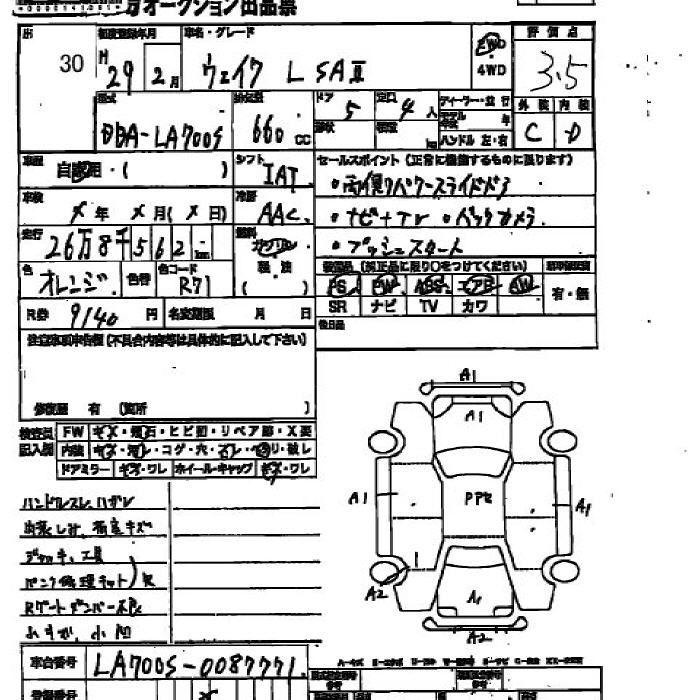 オークション出品票
出 30
初度登録年月 H 29 年 2 月
車名・グレード ウェイク L SAⅢ
2WD 4WD
評価点 3.5
外装 C 内装 D
型式 DBA-LA700S
排気量 660 cc
ドア 5
定員 4 人
形状
積載 kg
ディーラー・並行
モデル年式 年
ハンドル 左・右
車歴 自家用・( )
シフト IAT
セールスポイント (正常に機能するものに限ります)
・両側パワースライドドア
・ナビ+TV ・バックカメラ
・プッシュスタート
車検 × 年 × 月 ( × 日)
冷房 AAC
走行 26万8千562 km
燃料 ガソリン 軽油 ( )
色 オレンジ 色替 色コード R71
装備品 (純正品に限り○をつけてください)
PS PW ABS エアB AW
SR ナビ TV カワ
有・無
後日品
R券 9140 円
名変期限 月 日
注意事項申告欄 (不具合内容等は具体的に記入して下さい)
修復歴 有 (箇所 )
検査員記入欄
FW キズ・飛石・ヒビ割・リペア跡・X要
内装 キズ・汚レ・コゲ・穴・スレ・切リ・破レ
ドアミラー キズ・ワレ ホイール・キャップ キズ・ワレ
ハンドルスレ、ハガレ
ジャッキ、工具
パンク修理キット)欠
Rゲートダンパー不良
小凹
A1
A1
PPt
A1 A1
A2
A1
A2
車台番号 LA700S-0087771
登録番号